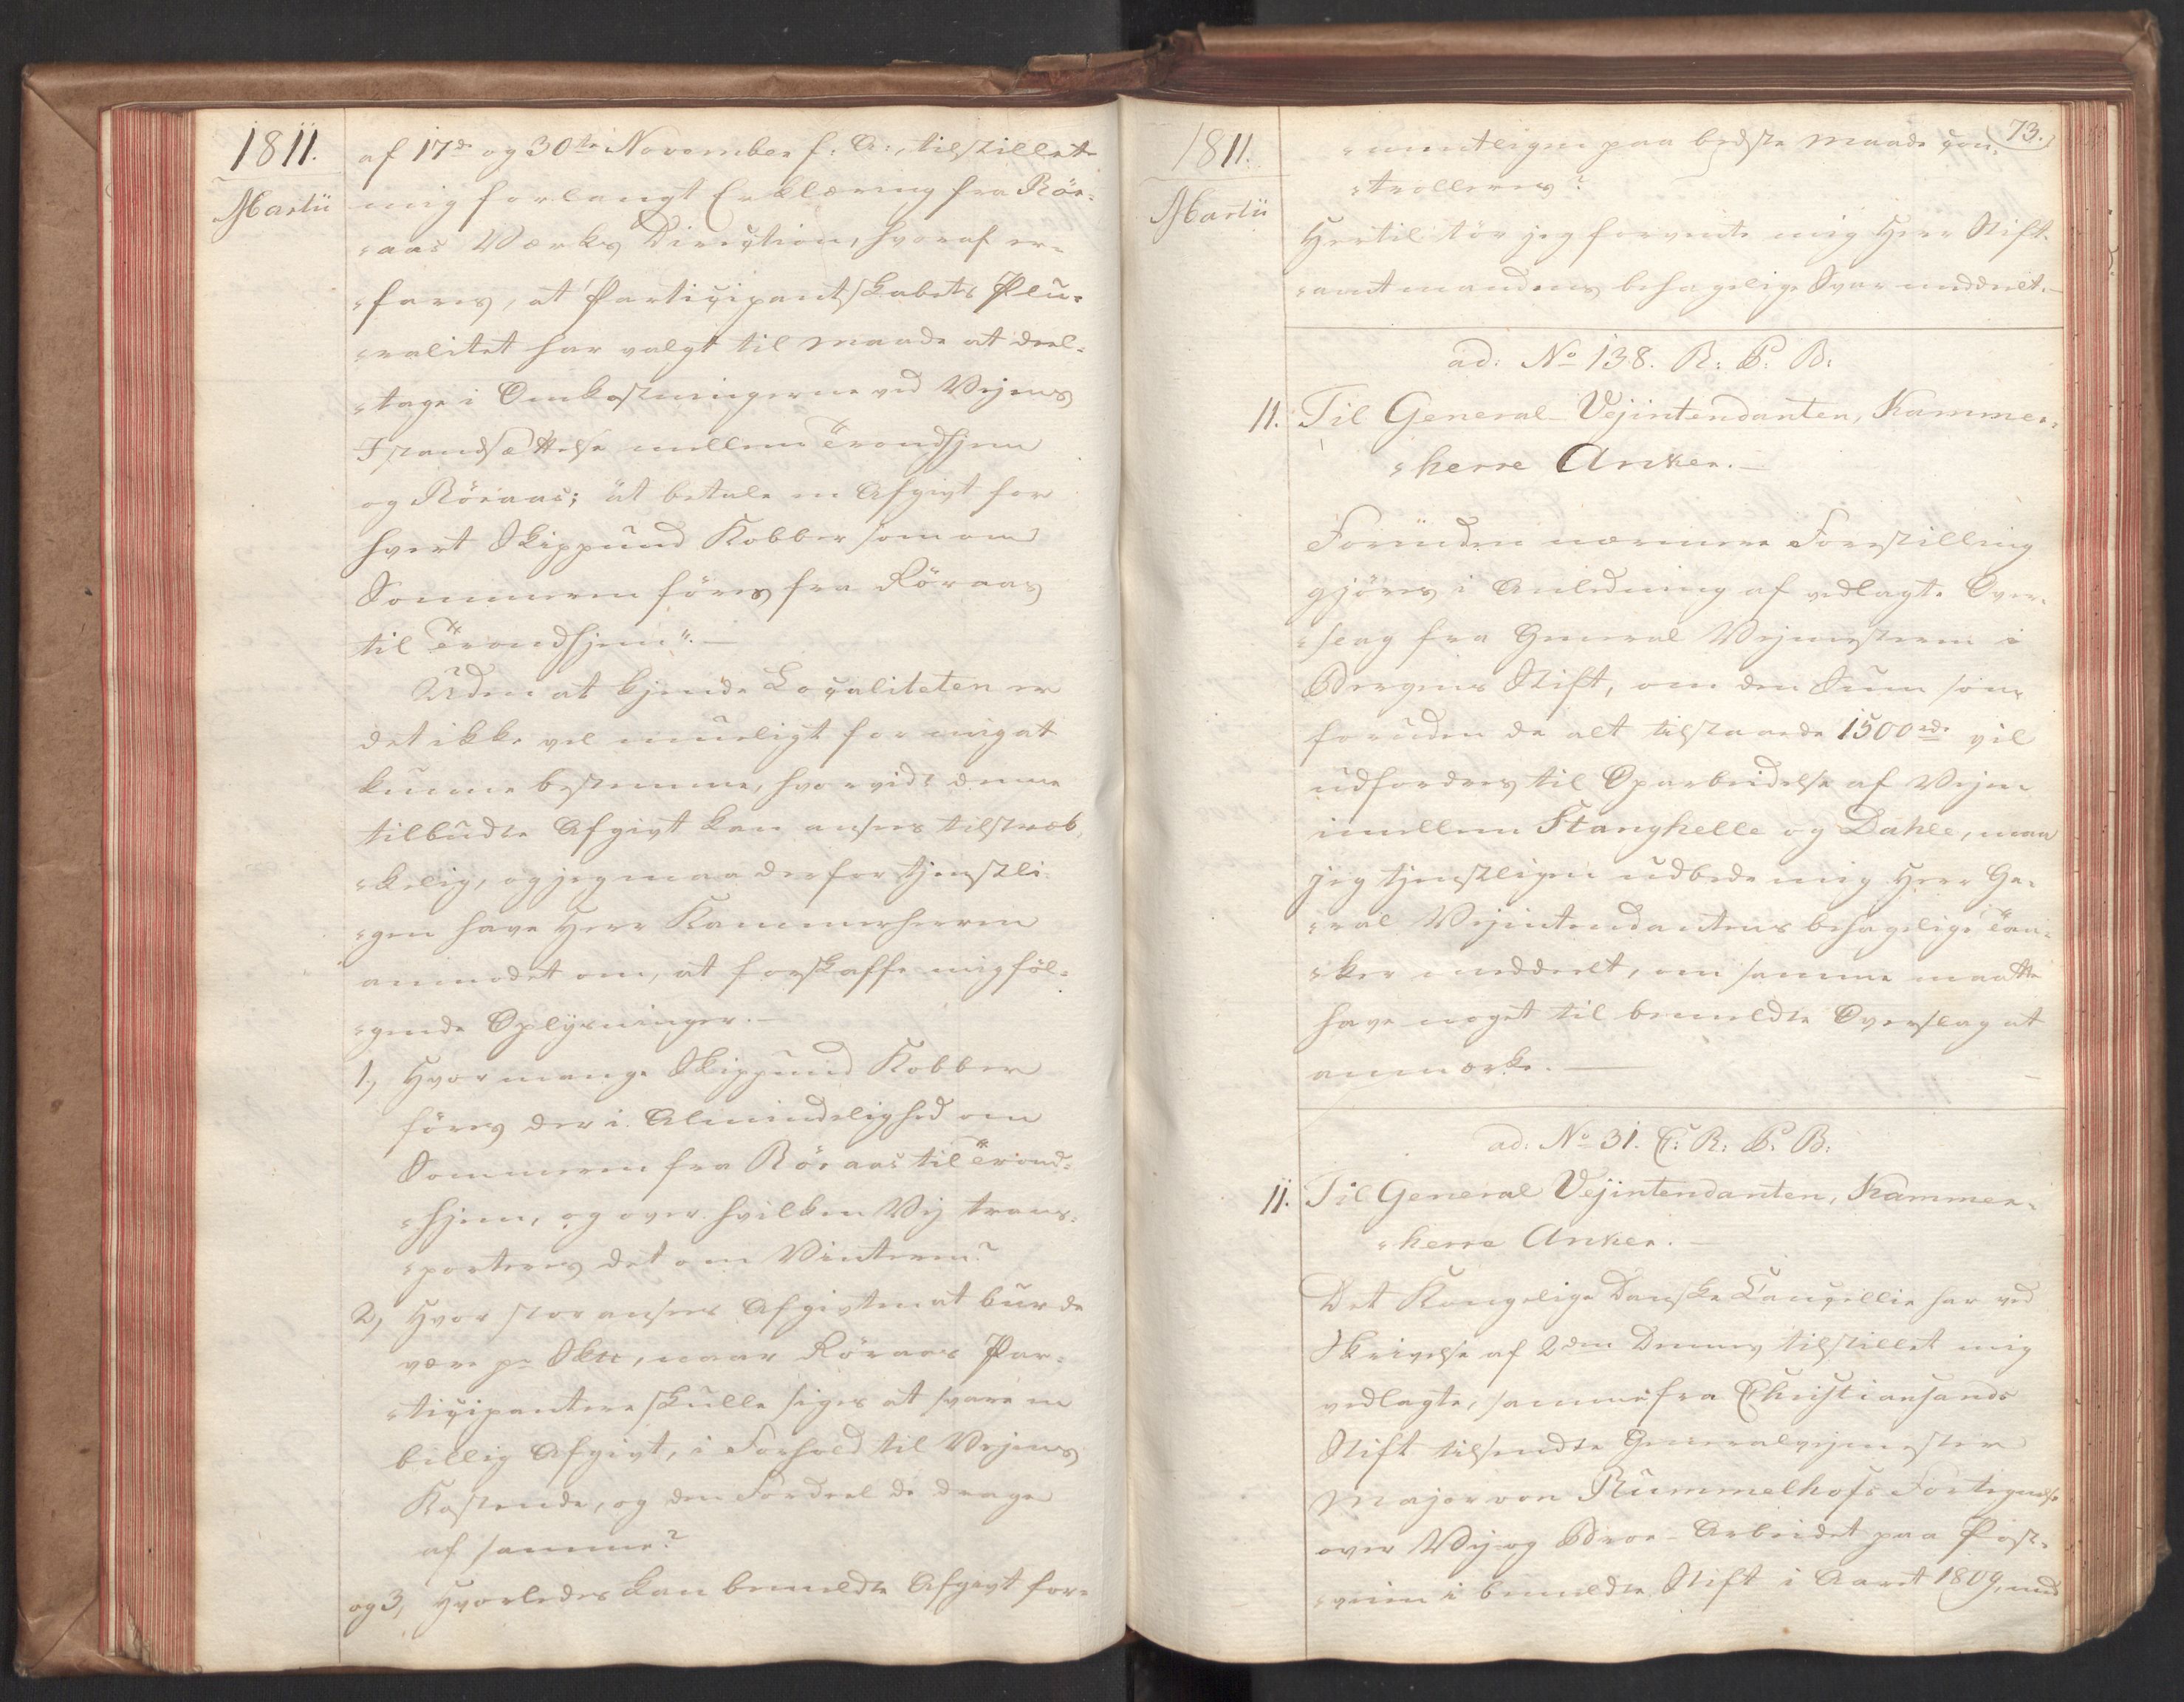 1811.
Martii
af 17de og 30te November f: A:, tilstillet
mig forlangt Erklæring fra Rör-
-aas Værks Direction, hvoraf er-
-fares, at Participantskabets Plu-
-ralitet har valgt til Maade at deel-
-tage i Omkostningerne ved Vejens
Istandsættelse mellem Trondhjem
og Röraas; at betale en Afgivt for
hvert Skippund Kobber som om
Sommeren föres fra Röraas
til Trondhjem".—
Uden at kjende Localiteten er
det ikke vel mueligt for mig at
kunne bestemme, hvorvidt denne
tilbudte Afgivt kan ansees tilstræk-
-kelig, og jeg maa derfor tjenstli-
-gen have Herr Kammerherren
anmodet om, at forskaffe mig föl-
-gende Oplysninger.—
1, Hvor mange Skippund Kobber
föres der i Almindelighed om
Sommeren fra Röraas til Trond-
-hjem, og over hvilken Vej trans-
-porteres det om Vinteren?
2, Hvor stor ansees Afgivten at burde
være pr Sk℔, naar Röraas Par-
-ticipantere skulle siges at svare en
billig Afgivt, i Forhold til Vejens
Kostende, og den Fordeel de drage
af samme?
og 3, Hvorledes kan bemeldte Afgivt for-
73.
1811.
Martii
-mentligen paa bedste Maade con-
-trolleres?
Hertil tör jeg forvente mig Herr Stift-
-amtmandens behagelige Svar meddeelt.—
ad: No 138. R: P: B:
11. Til General-Vejintendanten, Kammer-
-herre Anker.—
Forinden nærmere Forestilling
gjöres i Anledning af vedlagte Over-
-slag fra General Vejmesteren i
Bergens Stift, om den Sum som
foruden de alt tilstaaede 1500 rdr vil
udfordres til Oparbeidelse af Vejen
imellem Stanghelle og Dahle, maa
jeg tjenstligen udbede mig Herr Ge-
-ral Vejintendantens behagelige Tan-
-ker meddeelt, om samme maatte
have noget til bemeldte Overslag at
anmærke.—
ad: No 31. C: R: P: B:
11. Til General Vejintendanten, Kammer-
-herre Anker.—
Det Kongelige Danske Cancellie har ved
Skrivelse af 2den Dennes tilstillet mig
vedlagte, samme fra Christiansands
Stift tilsendte Generalvejmester
Major von Rummelhofs Fortegnelse
over Vej og Broe-Arbeidet paa Post-
-veien i bemeldte Stift i Aaret 1809, med